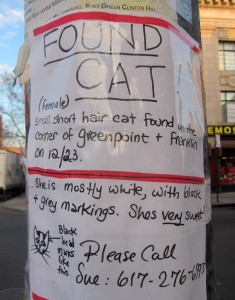 FOUND
CAT
(female)
small short hair cat found on the
corner of greenpoint + Franklin
on 12/23.
She is mostly white, with black
+ grey markings. Shes very sweet
Black
head
marks
like
this
Please Call
Sue: 617-276-